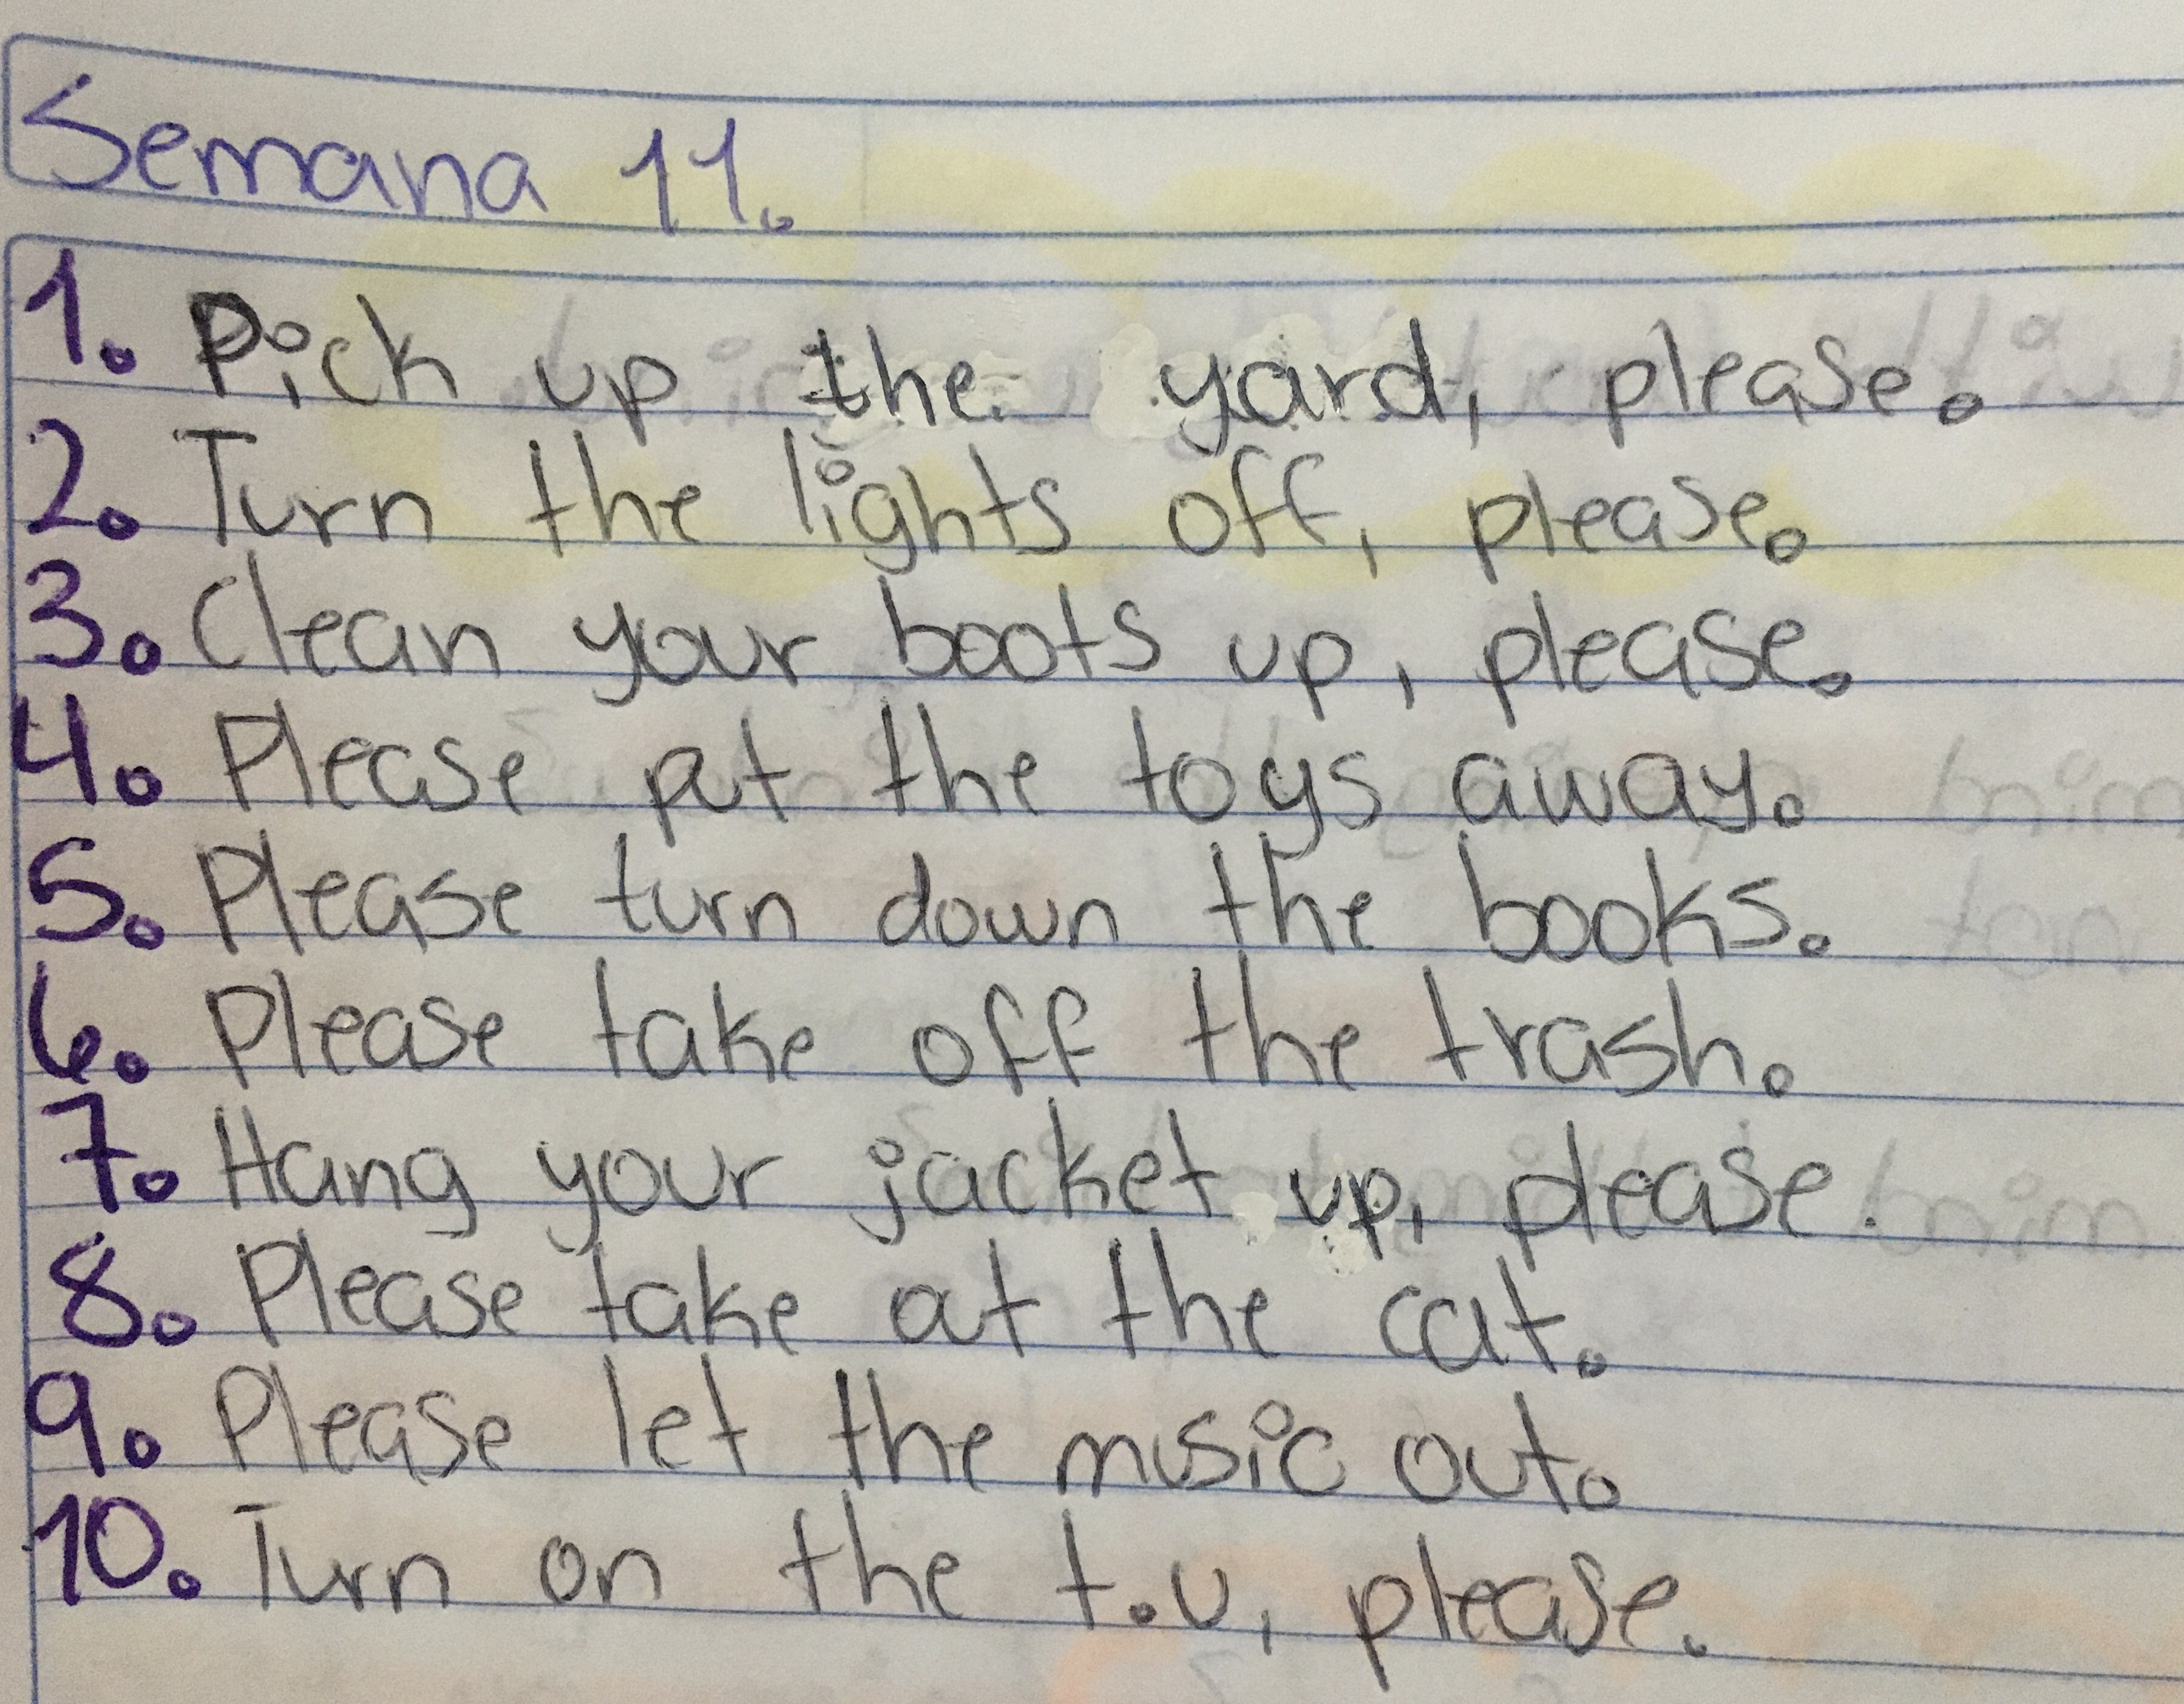 Semana 11.
1. Pick up the yard, please.
2. Turn the lights off, please.
3. Clean your boots up, please.
4. Please put the toys away.
5. Please turn down the books.
6. Please take off the trash.
7. Hang your jacket up, please.
8. Please take at the cat.
9. Please let the music out.
10. Turn on the t.v, please.